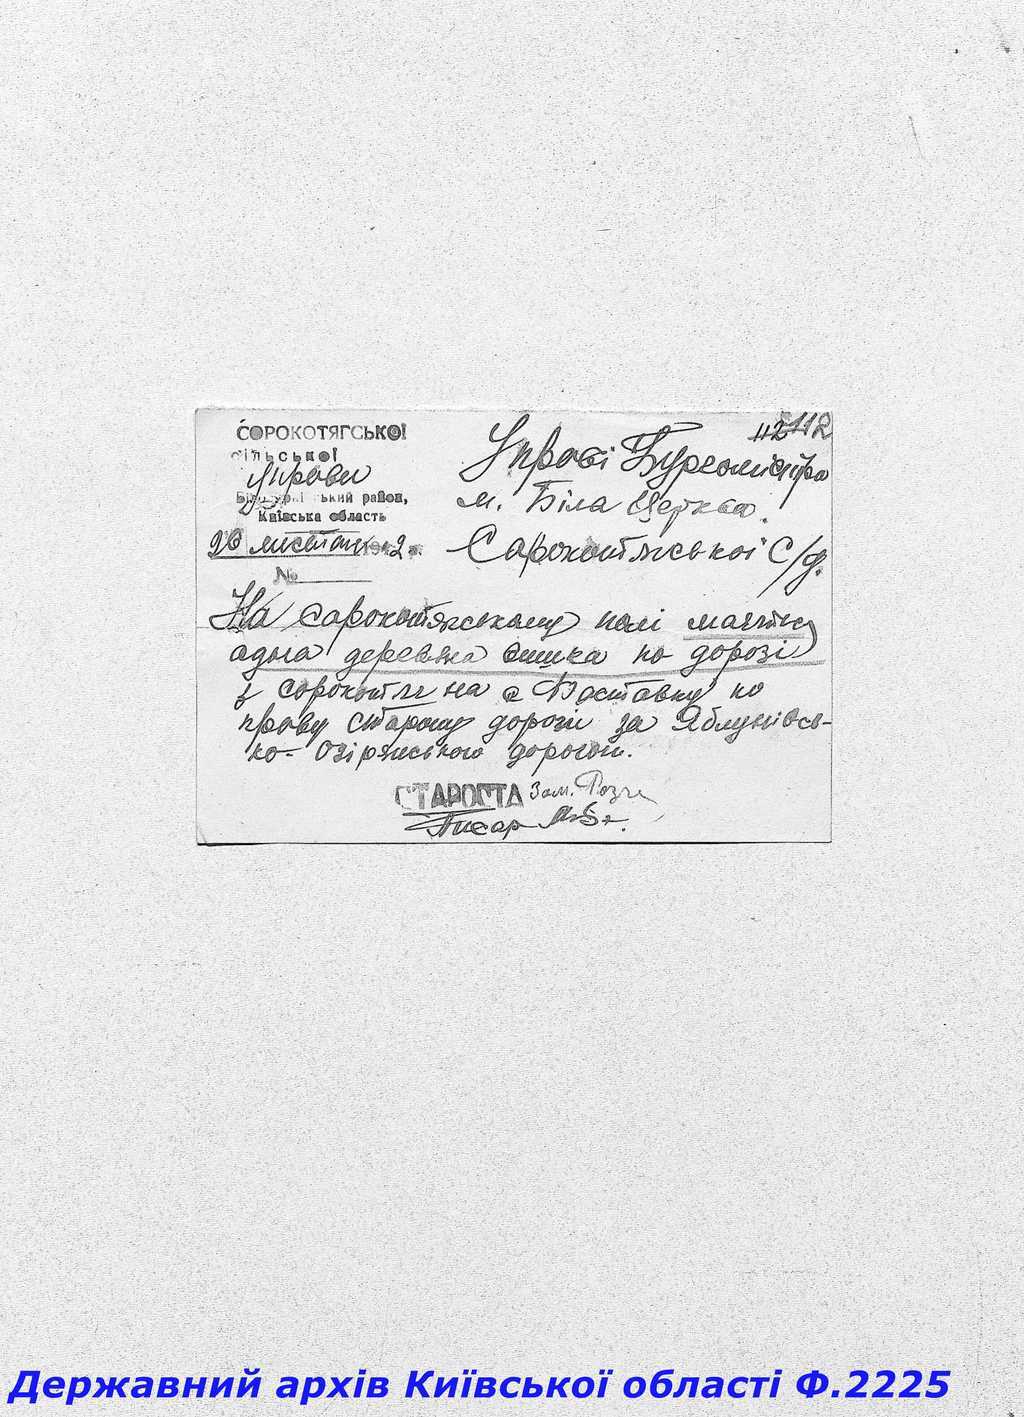 112
СОРОКОТЯГСЬКОЇ
сільської
Управи
район,
Київська область
26 листопа 1942 р.
№
Управі Бургомістра
м. Біла Церква.
Сорокотяжської С/у.
На сорокотяжському полі маєтьс
одна деревяна вишка по дорозі
з сорокотяг на с Поставку по
праву сторону дороги за Яблунівсь-
ко-Озірянською дорогою.
СТАРОСТА Зам.
Писар
Державний архів Київської області Ф.2225